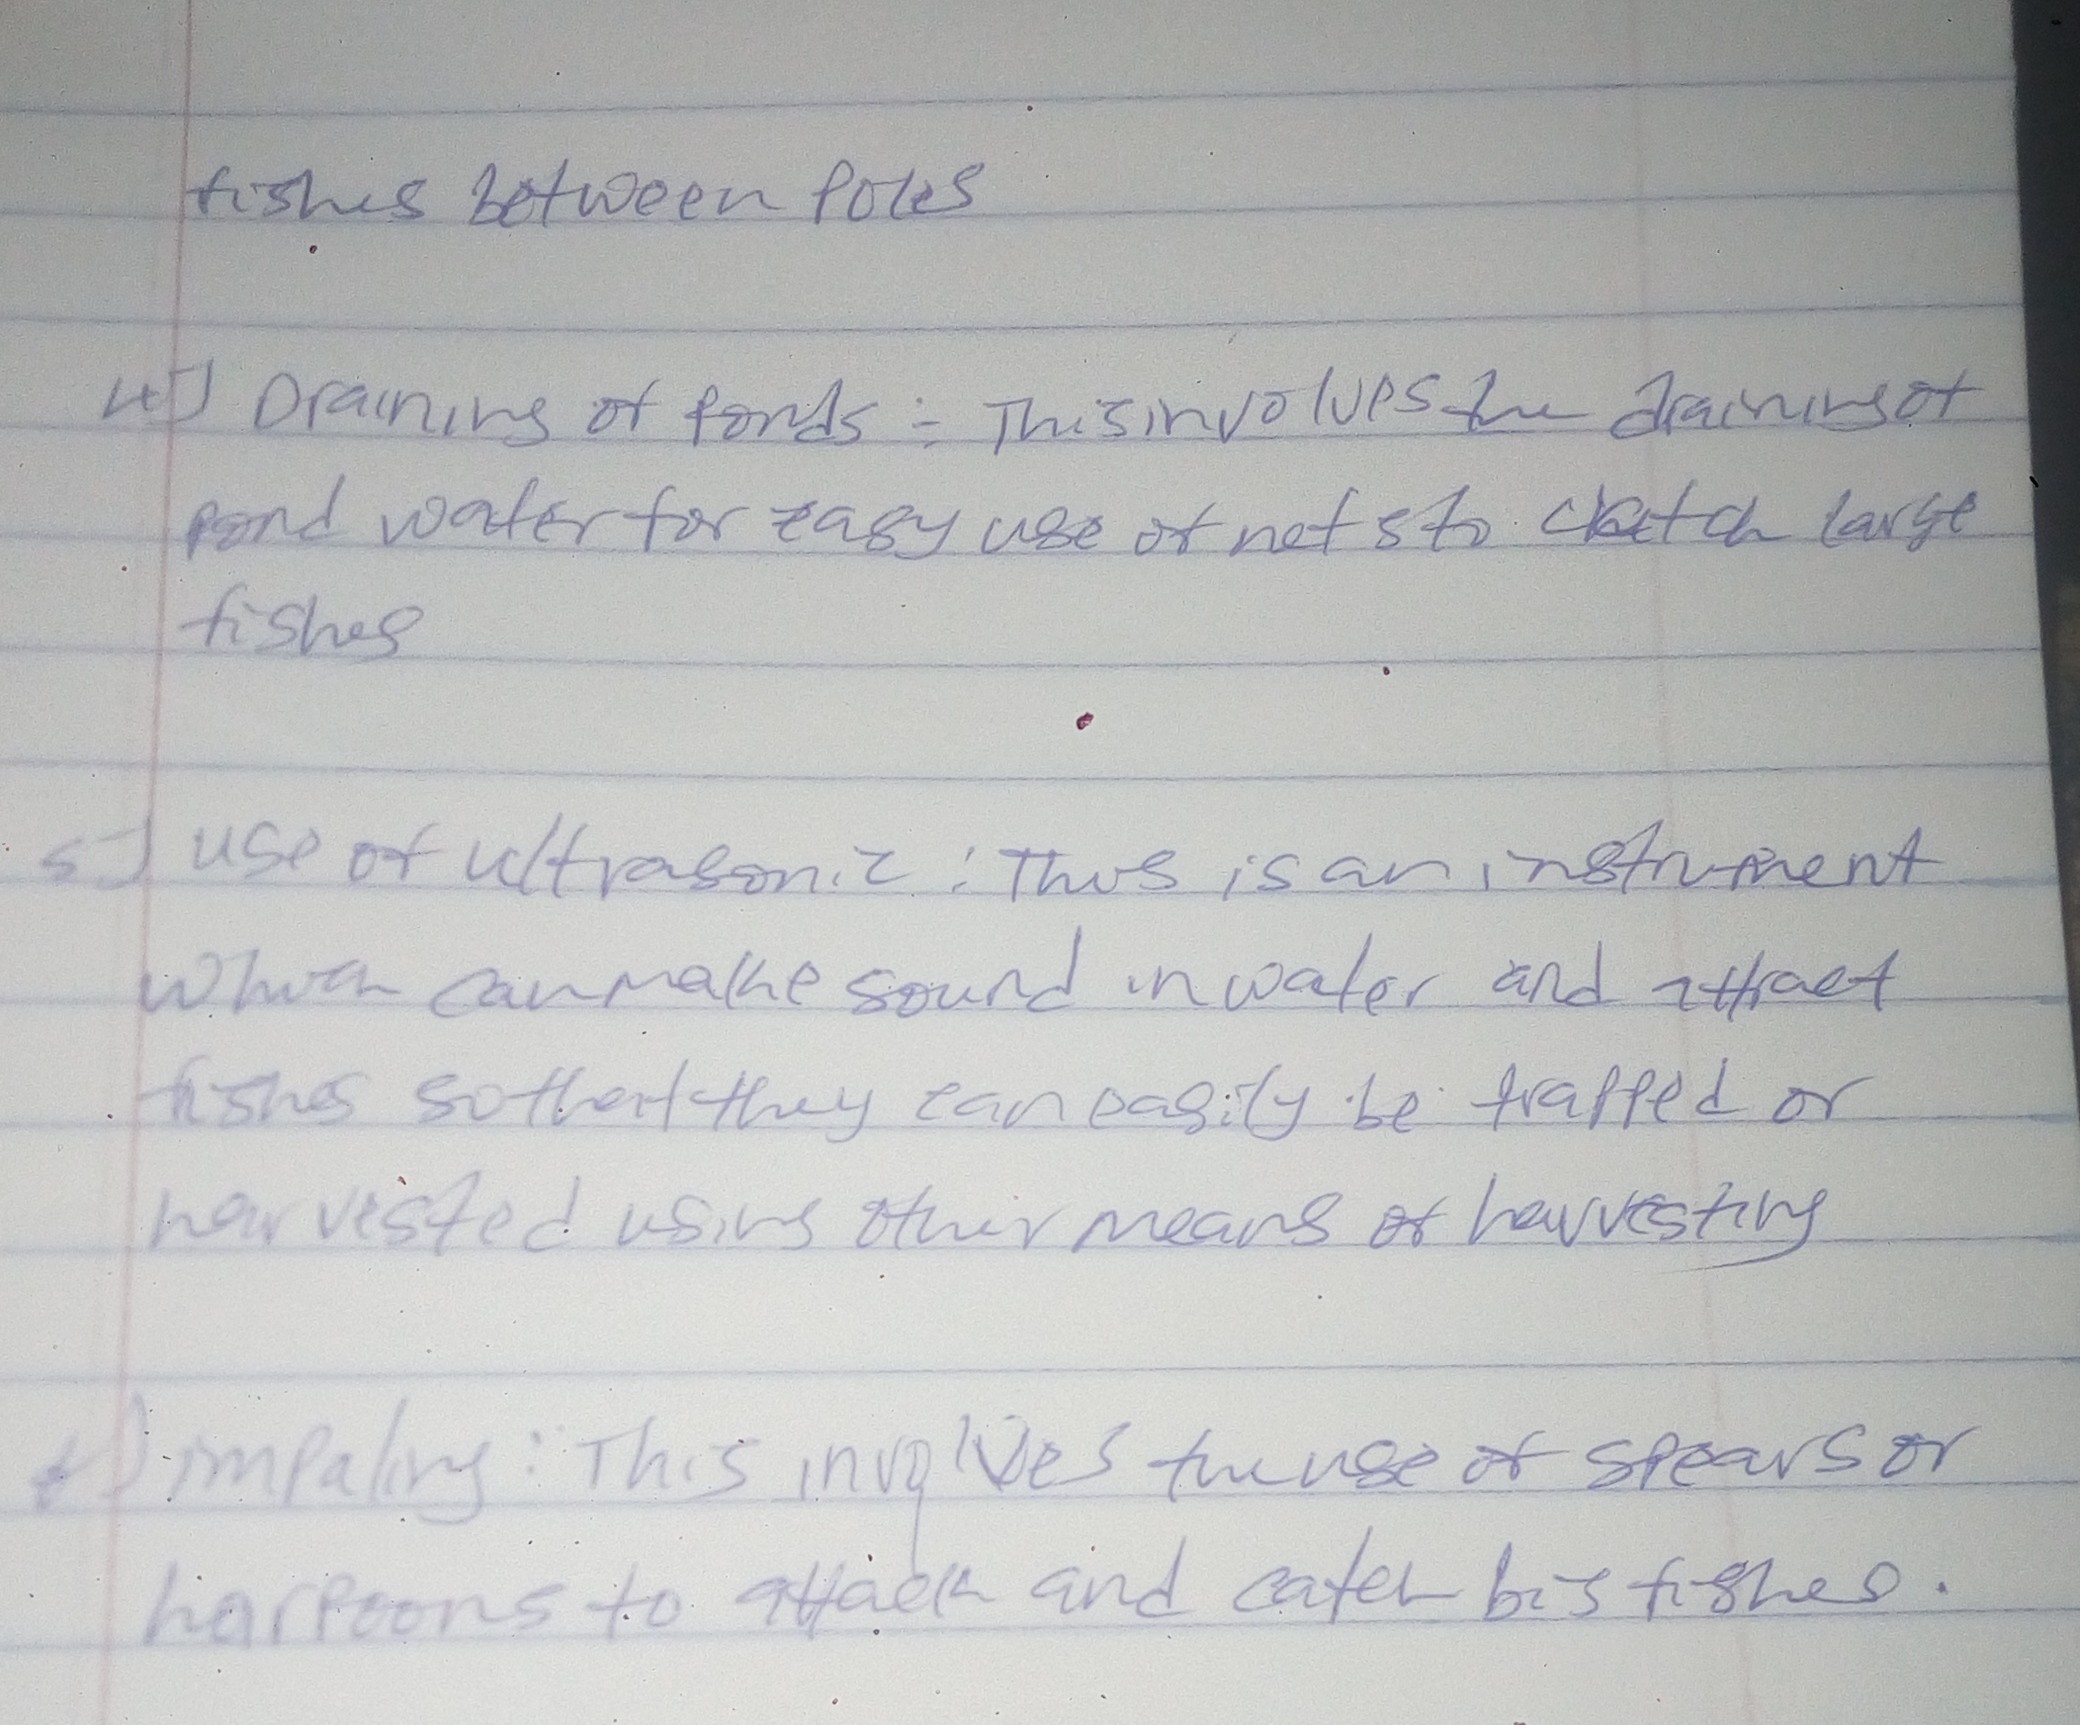 fishes between Poles
4] Draining of Ponds :- This involves the draining of
pond water for easy use of nets to catch large
fishes
5] use of ultrasonic : This is an instrument
which can make sound in water and attract
fishes so that they can easily be trapped or
harvested using other means of harvesting
impaling : This involves the use of spears or
harpoons to attack and catch big fishes.